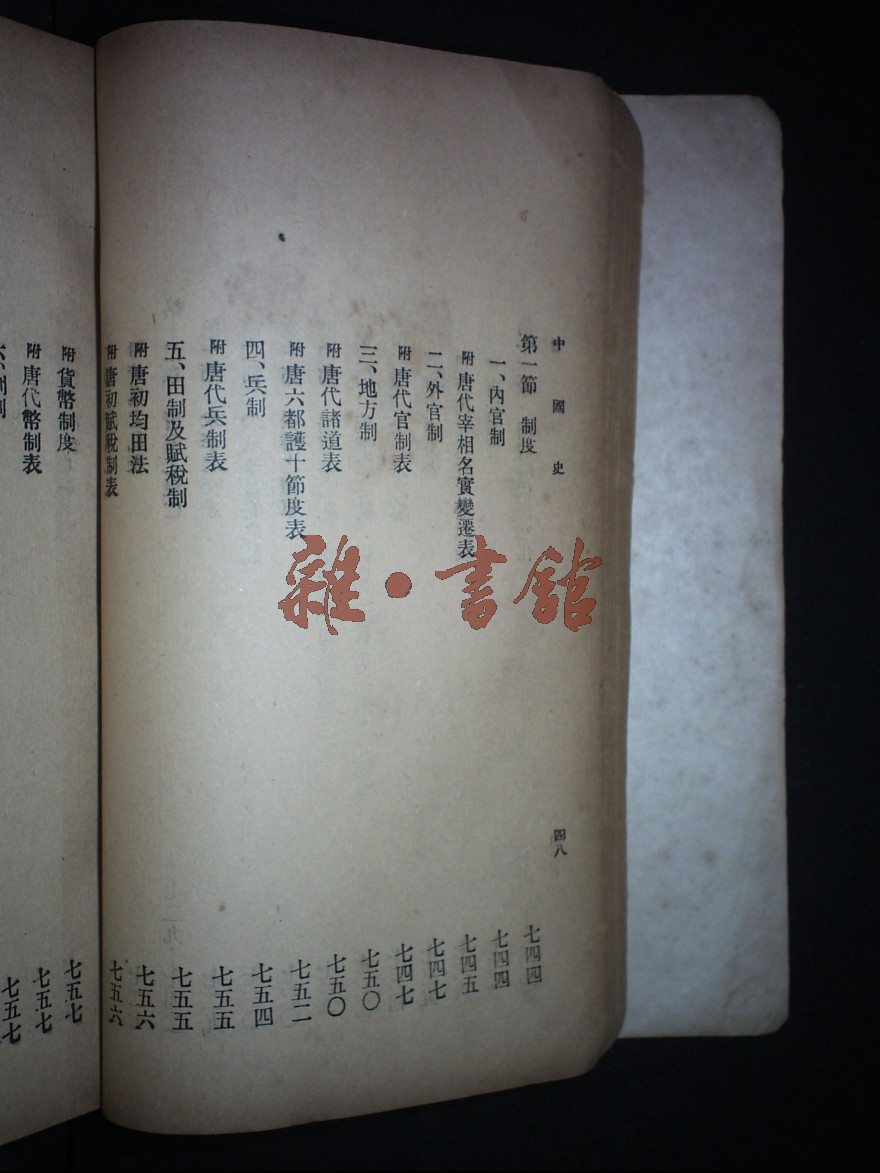 中國史
四八
第一節 制度 七四四
一、內官制 七四四
附 唐代宰相名實變遷表 七四五
二、外官制 七四七
附 唐代官制表 七四七
三、地方制 七五〇
附 唐代諸道表 七五〇
附 唐六都護十節度表 七五二
四、兵制 七五四
附 唐代兵制表 七五五
五、田制及賦稅制 七五五
附 唐初均田法 七五六
附 唐初賦稅制表 七五六
附 貨幣制度 七五七
附 唐代幣制表 七五七
七五七
雜·書館